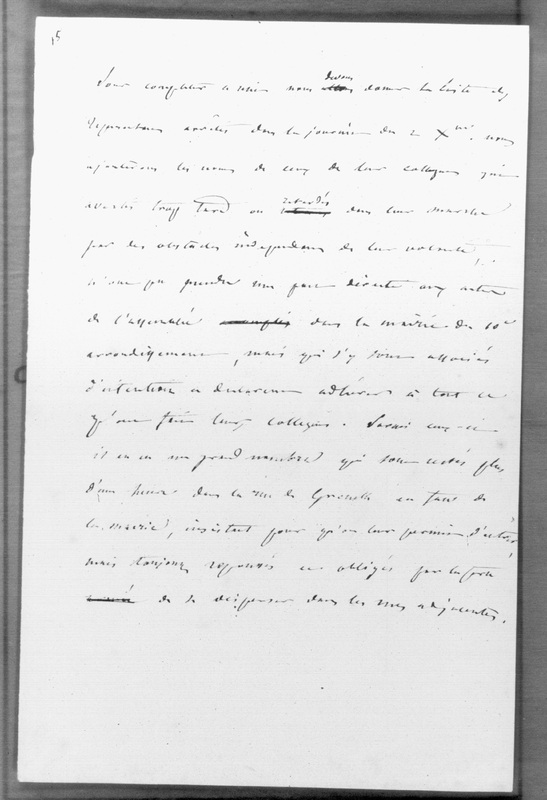 15
Pour compléter nous devons donner la liste des
représentans arrêtés dans la journée du 2 Xbre. nous
ajouterons les noms de ceux de leur collegues qui
avertis trop tard ou retardés dans leur marche
par des obstacles indépendans de leur volonté,
n'ont pu prendre une part directe aux actes
de l'assemblée dans la mairie du 10e
arrondissement, mais qui s'y sont associés
d'intention et declarent adhérer à tout ce
qu'ont fait leurs collegues. Parmi ceux-ci
il en est un grand nombre qui sont restés plus
d'une heure dans la rue de Grenelle en face de
la mairie, insistant pour qu'on leur permit d'entrer,
mais toujours repoussés et obligés par la force
de se disperser dans les rues adjacentes.